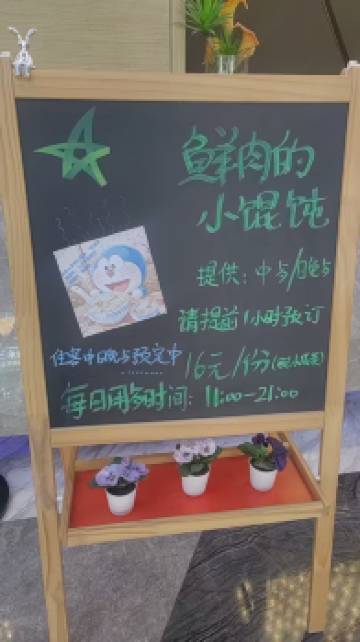 鲜肉的
小馄饨
提供:中与/晚与
请提前1小时预订
住客中晚与预定中
16元/份
每日用与时间:11:00-21:00